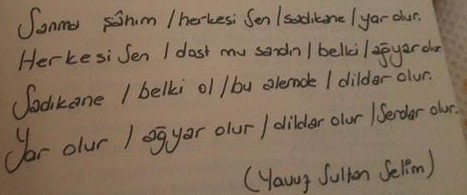 Sanma şâhım / herkesi sen / sadıkane / yar olur.
Herkesi sen / dost mu sandın / belki / ağyar olur
Sadıkane / belki ol / bu alemde / dildar olur.
Yar olur / ağyar olur / dildar olur / Serdar olur.
(Yavuz Sultan Selim)